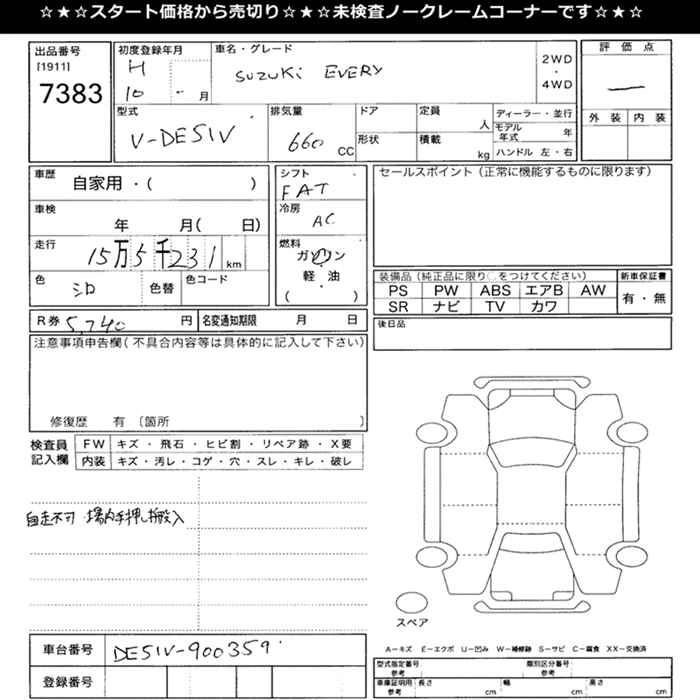 ☆★☆スタート価格から売切り☆★☆未検査ノークレームコーナーです☆★☆
出品番号
[1911]
7383
初度登録年月
H
10 - 月
車名・グレード
SUZUKI EVERY
2WD
・
4WD
評価点
—
外装 内装
型式
V-DE51V
排気量
660 CC
ドア
形状
定員
人
積載
kg
ディーラー・並行
モデル年式 年
ハンドル 左・右
車歴
自家用・( )
車検
年 月( 日)
走行
15万5千231 km
色
シロ
色替
色コード
シフト
FAT
冷房
AC
燃料
ガソリン
軽・油
( )
セールスポイント(正常に機能するものに限ります)
装備品(純正品に限り○をつけてください)
PS PW ABS エアB AW
SR ナビ TV カワ
新車保証書
有・無
後日品
R券 5,740 円
名変通知期限 月 日
注意事項申告欄(不具合内容等は具体的に記入して下さい)
修復歴 有 〔箇所
検査員
記入欄
FW キズ・飛石・ヒビ割・リペア跡・X要
内装 キズ・汚レ・コゲ・穴・スレ・キレ・破レ
自走不可 場内手押し搬入
スペア
車台番号 DE51V-900359
登録番号
A-キズ E-エクボ U-凹み W-補修跡 S-サビ C-腐食 XX-交換済
型式指定番号
参考
類別区分番号
参考
車庫証明用
参考
長さ cm
幅 cm
高さ cm